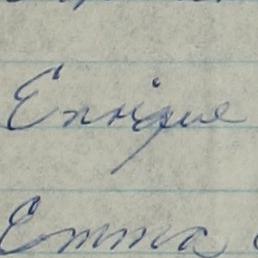 Enrique
Emma